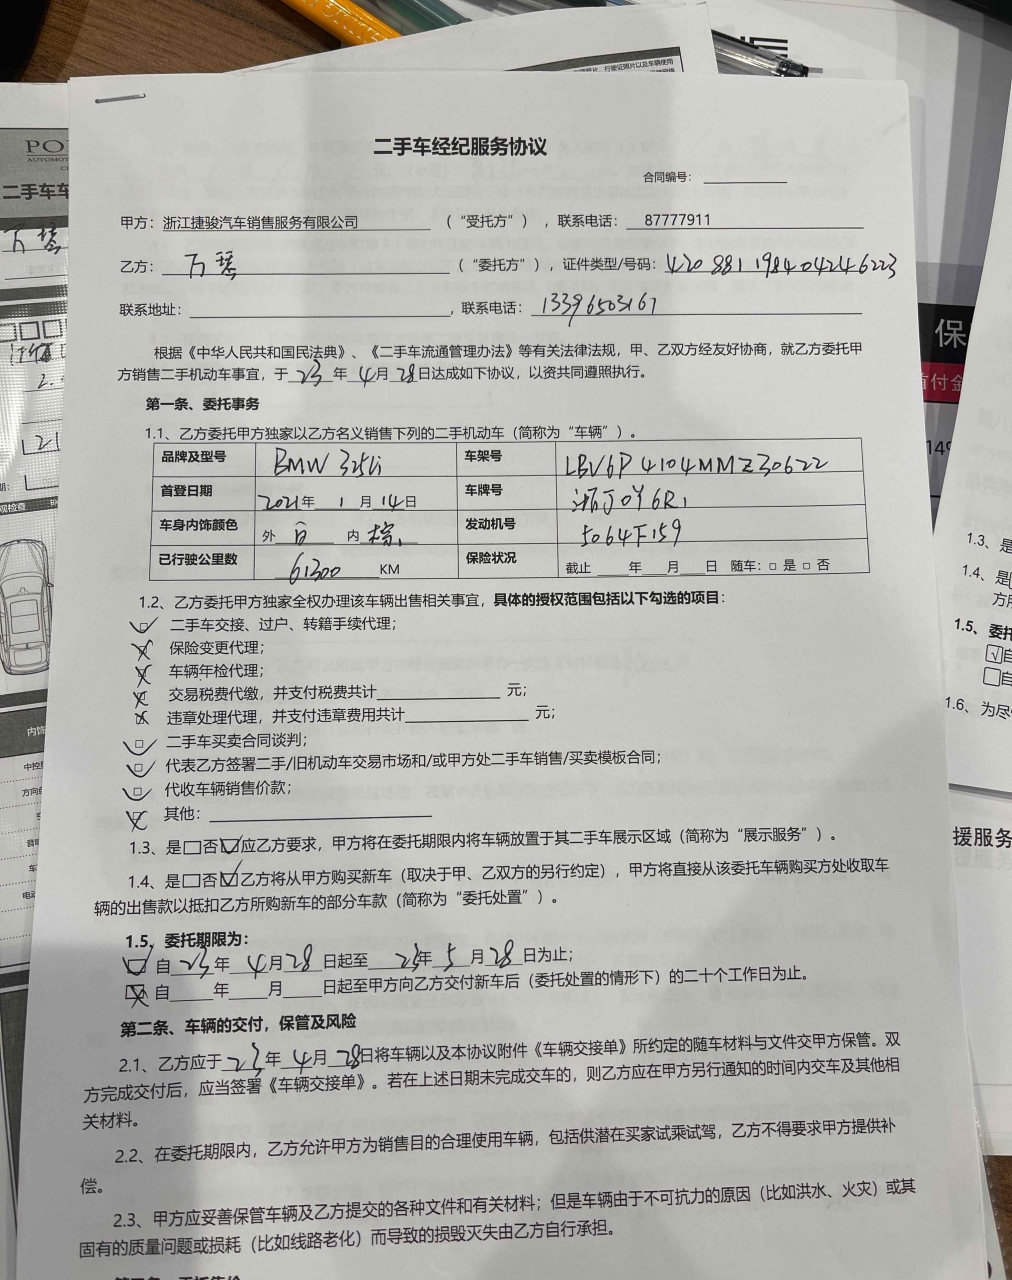 二手车经纪服务协议
合同编号：
甲方：浙江捷骏汽车销售服务有限公司（“受托方”），联系电话：87777911
乙方：万琴（“委托方”），证件类型/号码：420881198404246223
联系地址：，联系电话：13396503167
根据《中华人民共和国民法典》、《二手车流通管理办法》等有关法律法规，甲、乙双方经友好协商，就乙方委托甲
方销售二手机动车事宜，于23年4月28日达成如下协议，以资共同遵照执行。
第一条、委托事务
1.1、乙方委托甲方独家以乙方名义销售下列的二手机动车（简称为“车辆”）。
品牌及型号 BMW 325Li 车架号 LBV6P4104MMZ30622
首登日期 2021年1月14日 车牌号 浙J0Y6R1
车身内饰颜色 外白 内棕 发动机号 5064F159
已行驶公里数 61300 KM 保险状况 截止 年 月 日 随车：□ 是 □ 否
1.2、乙方委托甲方独家全权办理该车辆出售相关事宜，具体的授权范围包括以下勾选的项目：
二手车交接、过户、转籍手续代理；
保险变更代理；
车辆年检代理；
交易税费代缴，并支付税费共计 元；
违章处理代理，并支付违章费用共计 元；
二手车买卖合同谈判；
代表乙方签署二手/旧机动车交易市场和/或甲方处二手车销售/买卖模板合同；
代收车辆销售价款；
其他：
1.3、是□否☑应乙方要求，甲方将在委托期限内将车辆放置于其二手车展示区域（简称为“展示服务”）。
1.4、是□否☑乙方将从甲方购买新车（取决于甲、乙双方的另行约定），甲方将直接从该委托车辆购买方处收取车
辆的出售款以抵扣乙方所购新车的部分车款（简称为“委托处置”）。
1.5、委托期限为：
☑自23年4月28日起至23年5月28日为止；
自 年 月 日起至甲方向乙方交付新车后（委托处置的情形下）的二十个工作日为止。
第二条、车辆的交付，保管及风险
2.1、乙方应于23年4月28日将车辆以及本协议附件《车辆交接单》所约定的随车材料与文件交甲方保管。双
方完成交付后，应当签署《车辆交接单》。若在上述日期未完成交车的，则乙方应在甲方另行通知的时间内交车及其他相
关材料。
2.2、在委托期限内，乙方允许甲方为销售目的合理使用车辆，包括供潜在买家试乘试驾，乙方不得要求甲方提供补
偿。
2.3、甲方应妥善保管车辆及乙方提交的各种文件和有关材料；但是车辆由于不可抗力的原因（比如洪水、火灾）或其
固有的质量问题或损耗（比如线路老化）而导致的损毁灭失由乙方自行承担。